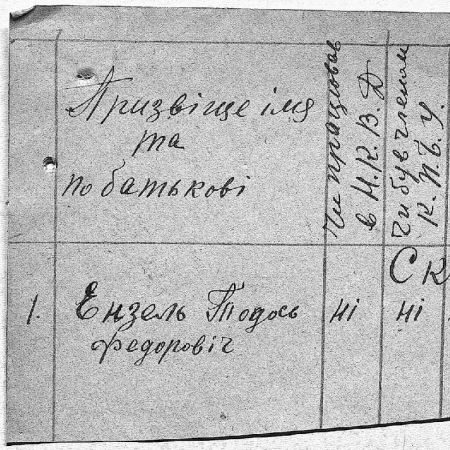 Призвіще імя
та
по батькові
Чи працював
в Н.К.В.Д
Чи був членом
К.П.б.У.
Ск
1. Ензель Тодось
федоровіч
ні
ні